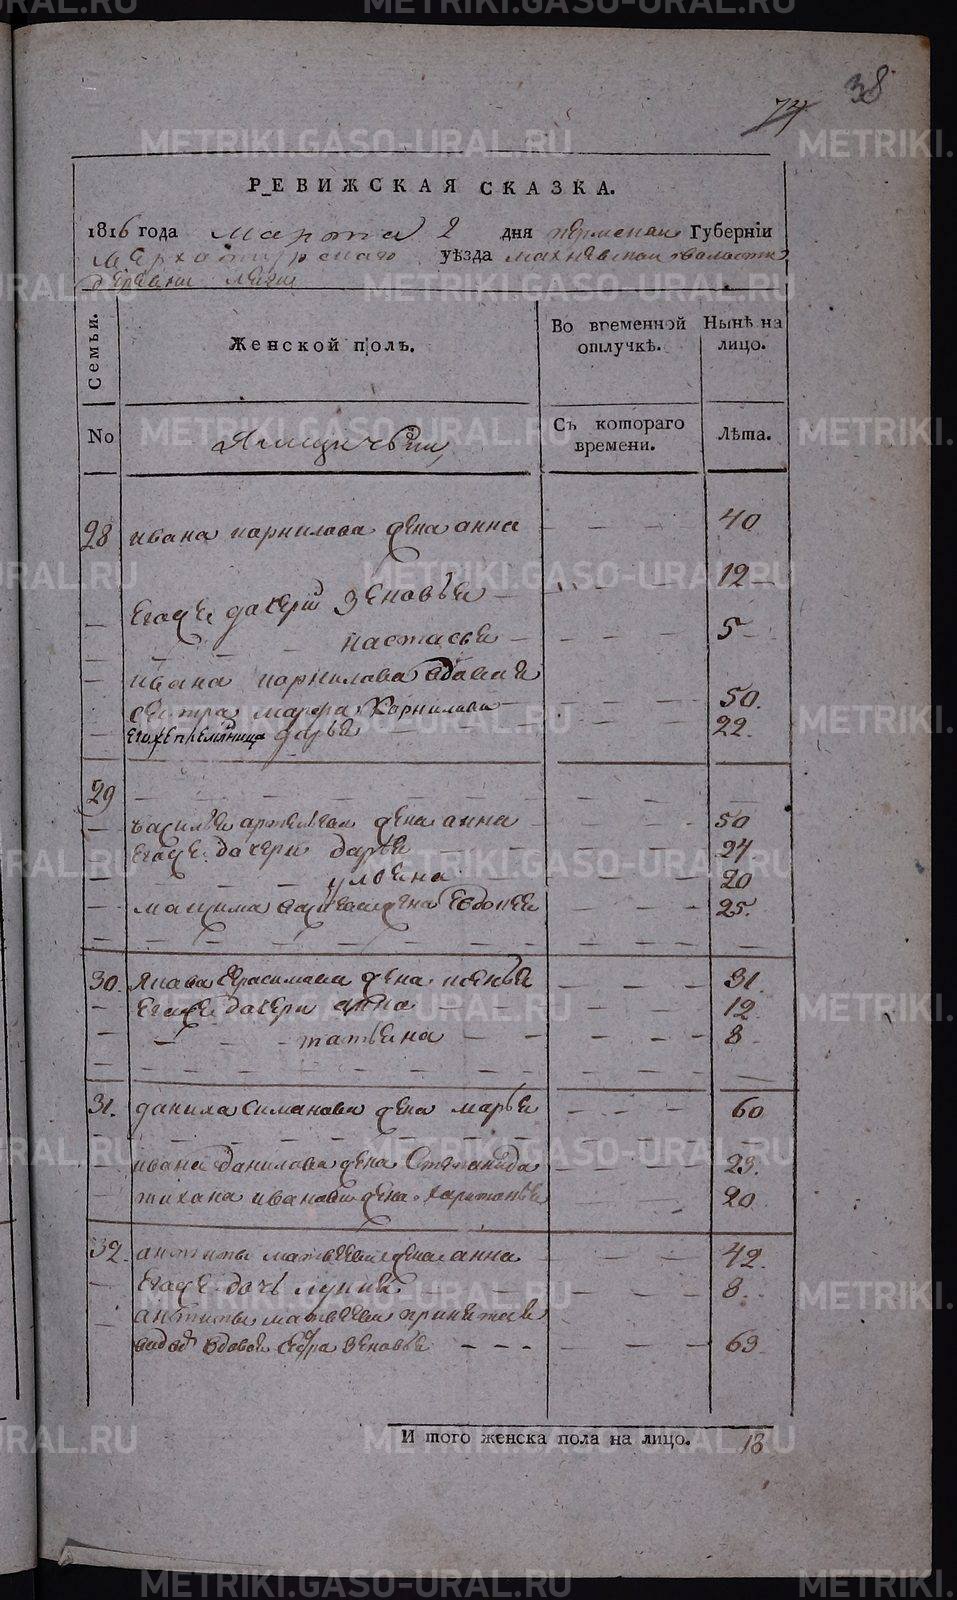 38
74
РЕВИЖСКАЯ СКАЗКА.
1816 года марта 2 дня пермской Губернїи
Верхотурскаго уѣзда махневской волости
деревни
Семьи.
Женской полъ.
Во временной отлучкѣ.
Нынѣ на лицо.
No
Ямщичьи
Съ котораго времени.
Лѣта.
28 ивана корнилова жена анна 40
егоже дочери зеновья 12
настасья 5
ивана корнилова вдовая
сестра марфа Корнилова 50.
егоже племяница дарья 22.
29
василья артемьева жена анна 50
егоже дочери дарья 24
ульяна 20
максима васильева жена евдокея 25.
30. Якова герасимова жена 31.
егоже дочери анна 12
татьяна 8
31. данила симанова жена марья 60
ивана данилова жена Степанида 29.
тихана иванова жена харитонья 20
32. антипы матвеева жена анна 42.
егоже дочь лукия 8.
антипы матвеева
вдовая сестра зеновья 69
И того женска пола на лицо. 18
METRIKI.GASO-URAL.RU